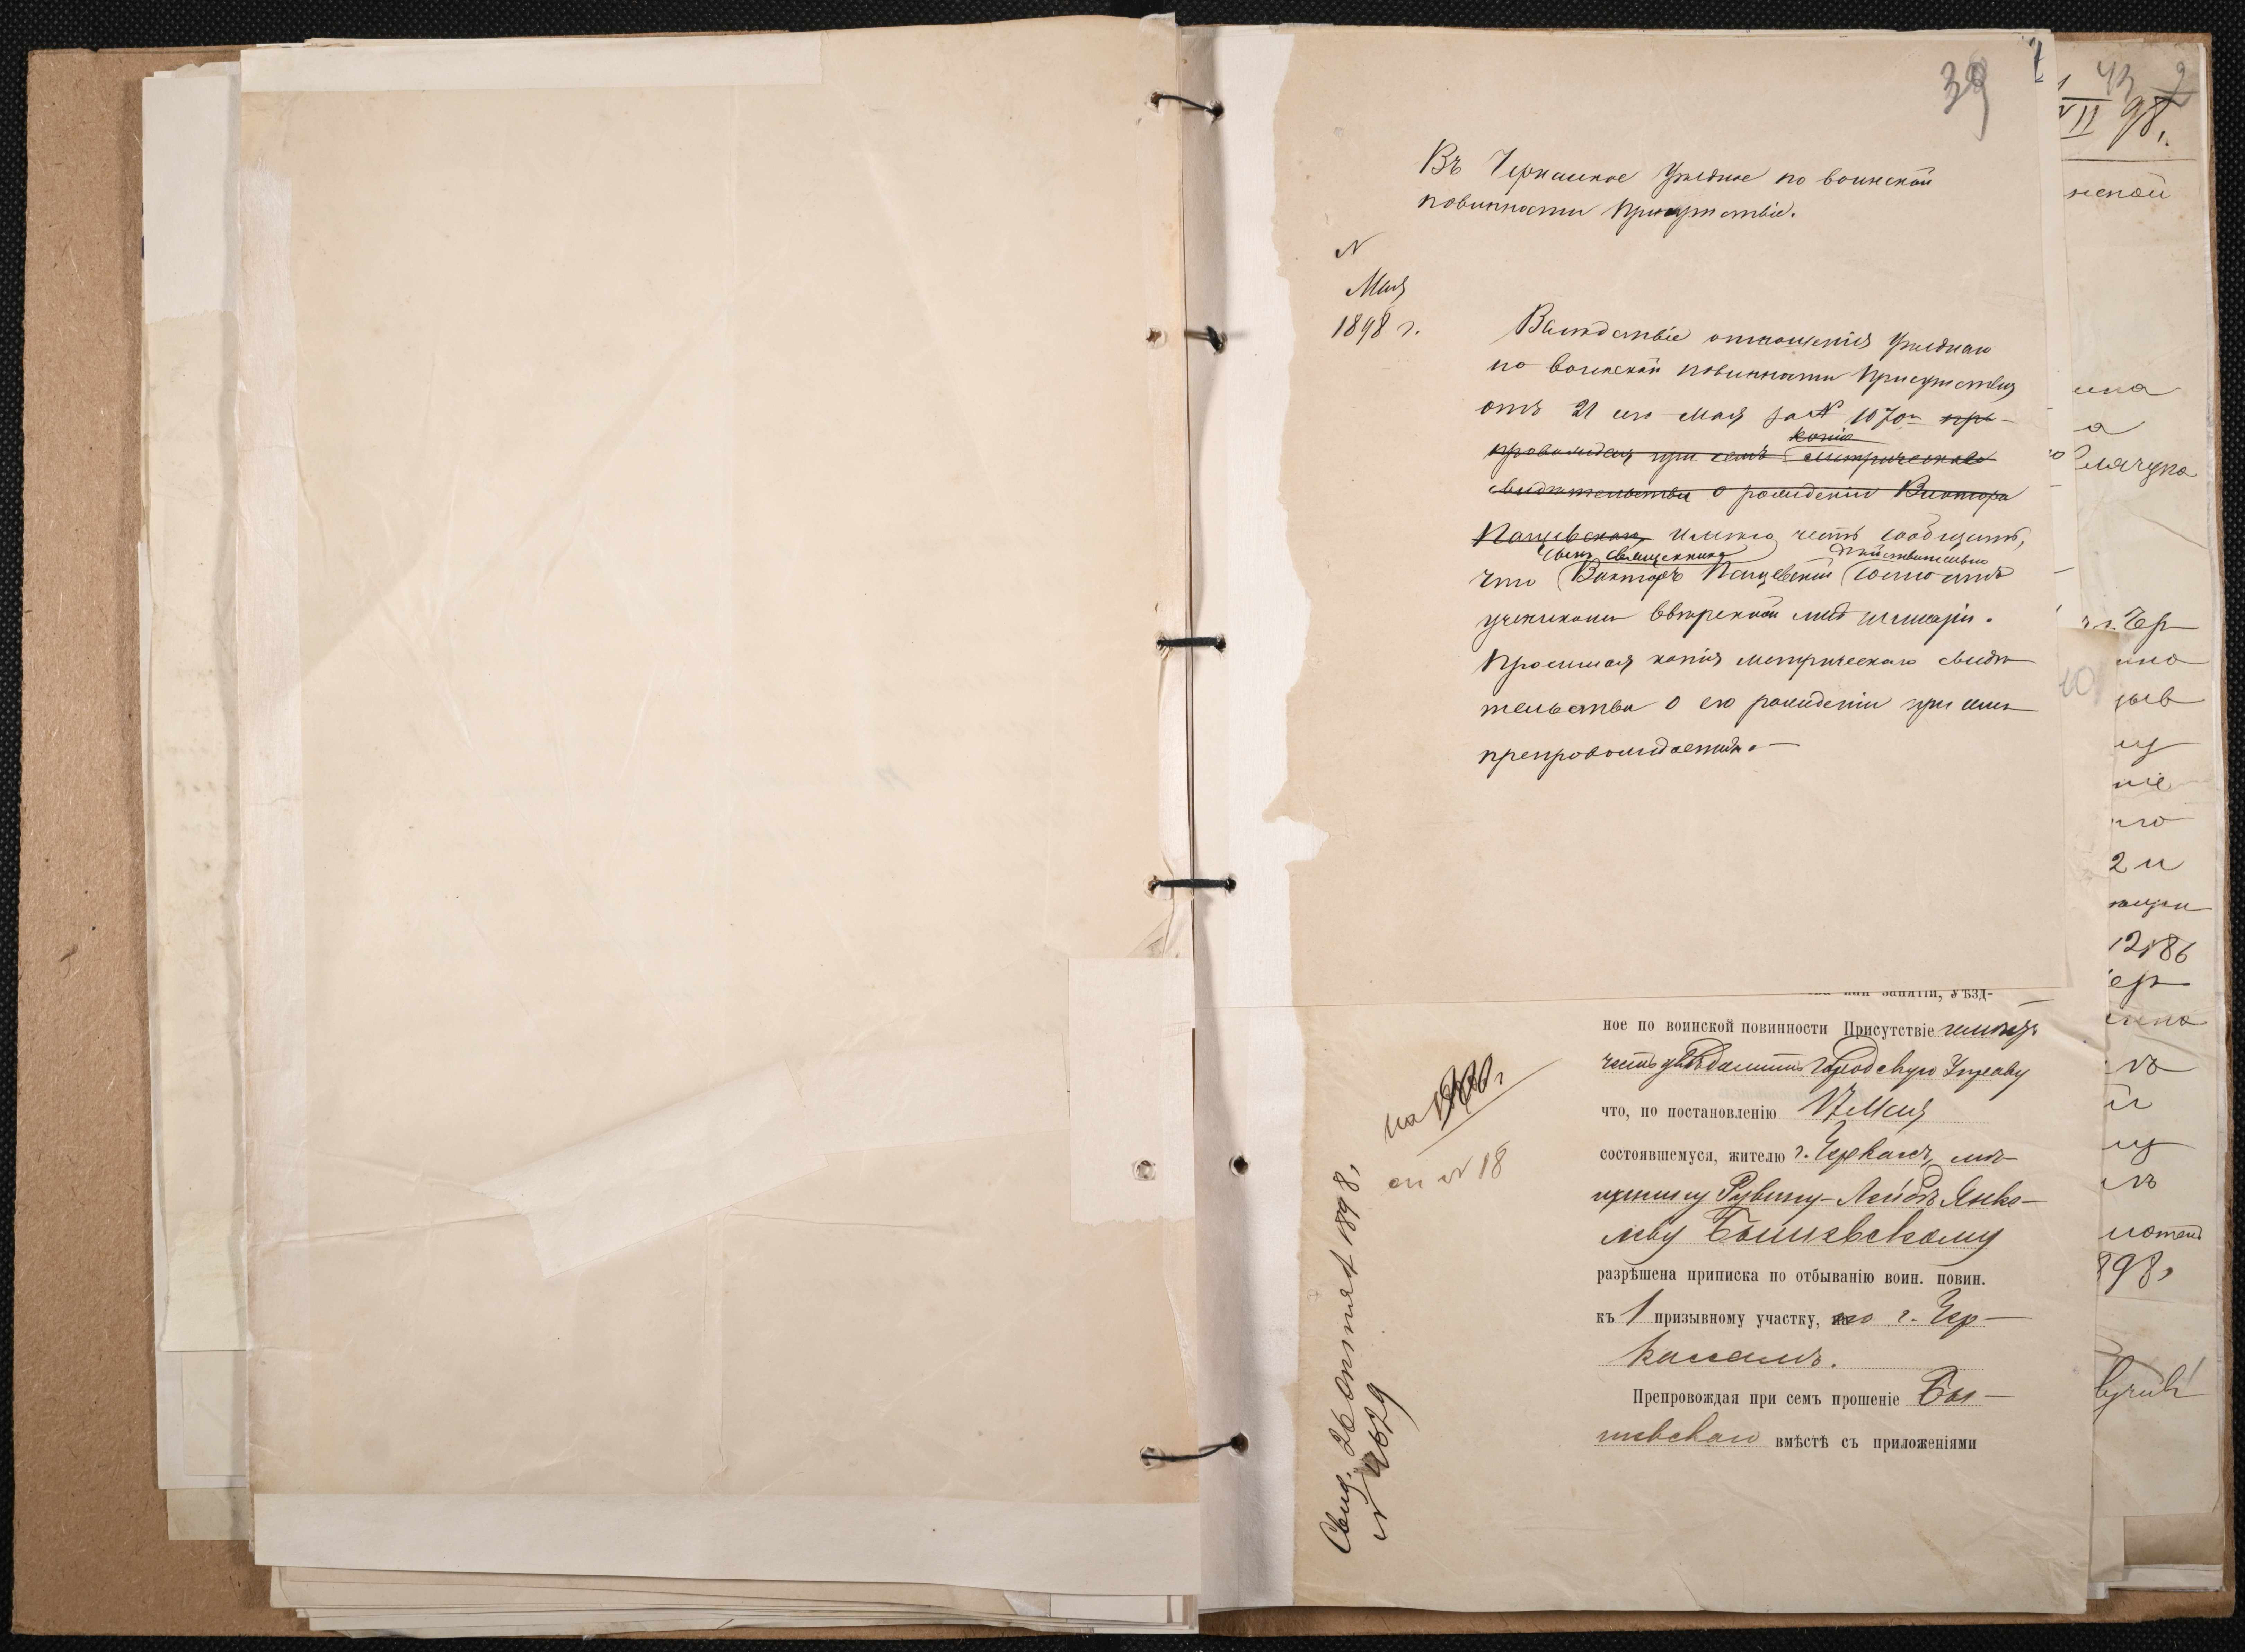 39
Въ Черкасское Уѣздное по воинской
повинности Присутствіе.
N
Мая
1898 г.
Вслѣдствіе отношенія Уѣзднаго
по воинской повинности Присутствія
отъ 21 сего Мая за № 1070 пре-
провождая при семъ копію метрическаго
свидѣтельства о рожденіи Виктора
Пащевскаго имѣю честь сообщить,
сынъ священника
дѣйствительно
что Викторъ Пащевскій состоитъ
ученикомъ ввѣренной мнѣ гимназіи.
Просимая копія метрическаго свидѣ-
тельства о его рожденіи при семъ
препровождается.—
или занятій, Уѣзд-
ное по воинской повинности Присутствіе имѣетъ
честь увѣдомить Городскую Управу
что, по постановленію 17 Мая
состоявшемуся, жителю г. Черкасъ, мѣ-
щанину Рувину-Лейбѣ Янке-
леву Бышевскому
разрѣшена приписка по отбыванію воин. повин.
къ 1 призывному участку, по г. Чер-
кассамъ.
Препровождая при семъ прошеніе Бы-
шевскаго вмѣстѣ съ приложеніями
на 1900 г
сп № 18
Свид. 26 Октября 1898 г.
№ 2629
43
VII 98 г.
нской
г. Чер
2 и
12186
898 г.